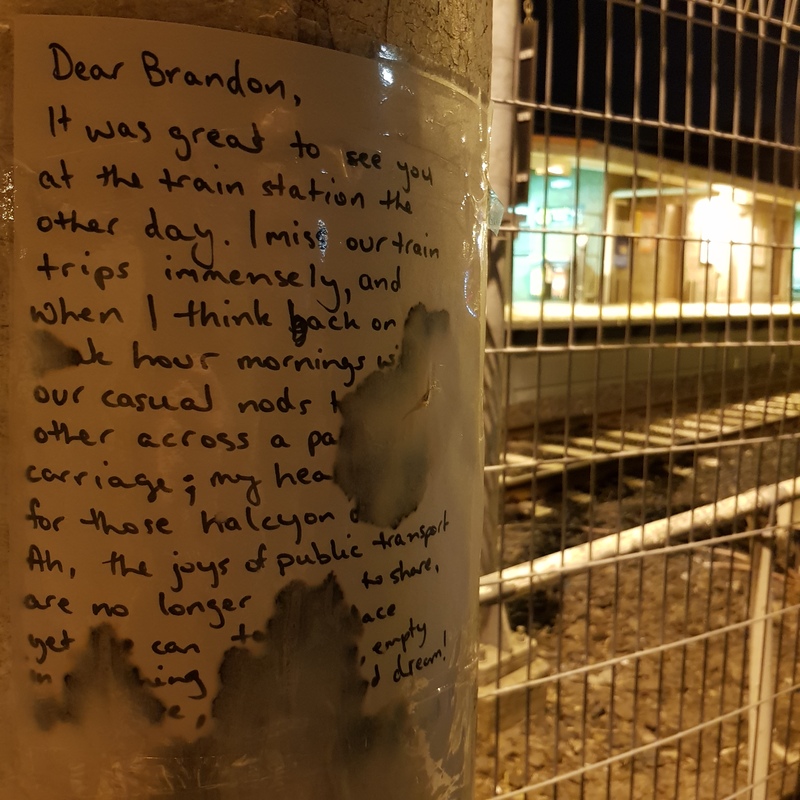 Dear Brandon,
It was great to see you
at the train station the
other day. I miss our train
trips immensely, and
when I think back on
hour mornings
our casual nods
other across a
carriage; my
for those halcyon
Ah, the joys of public transport
are no longer to share,
yet can
empty
dream!